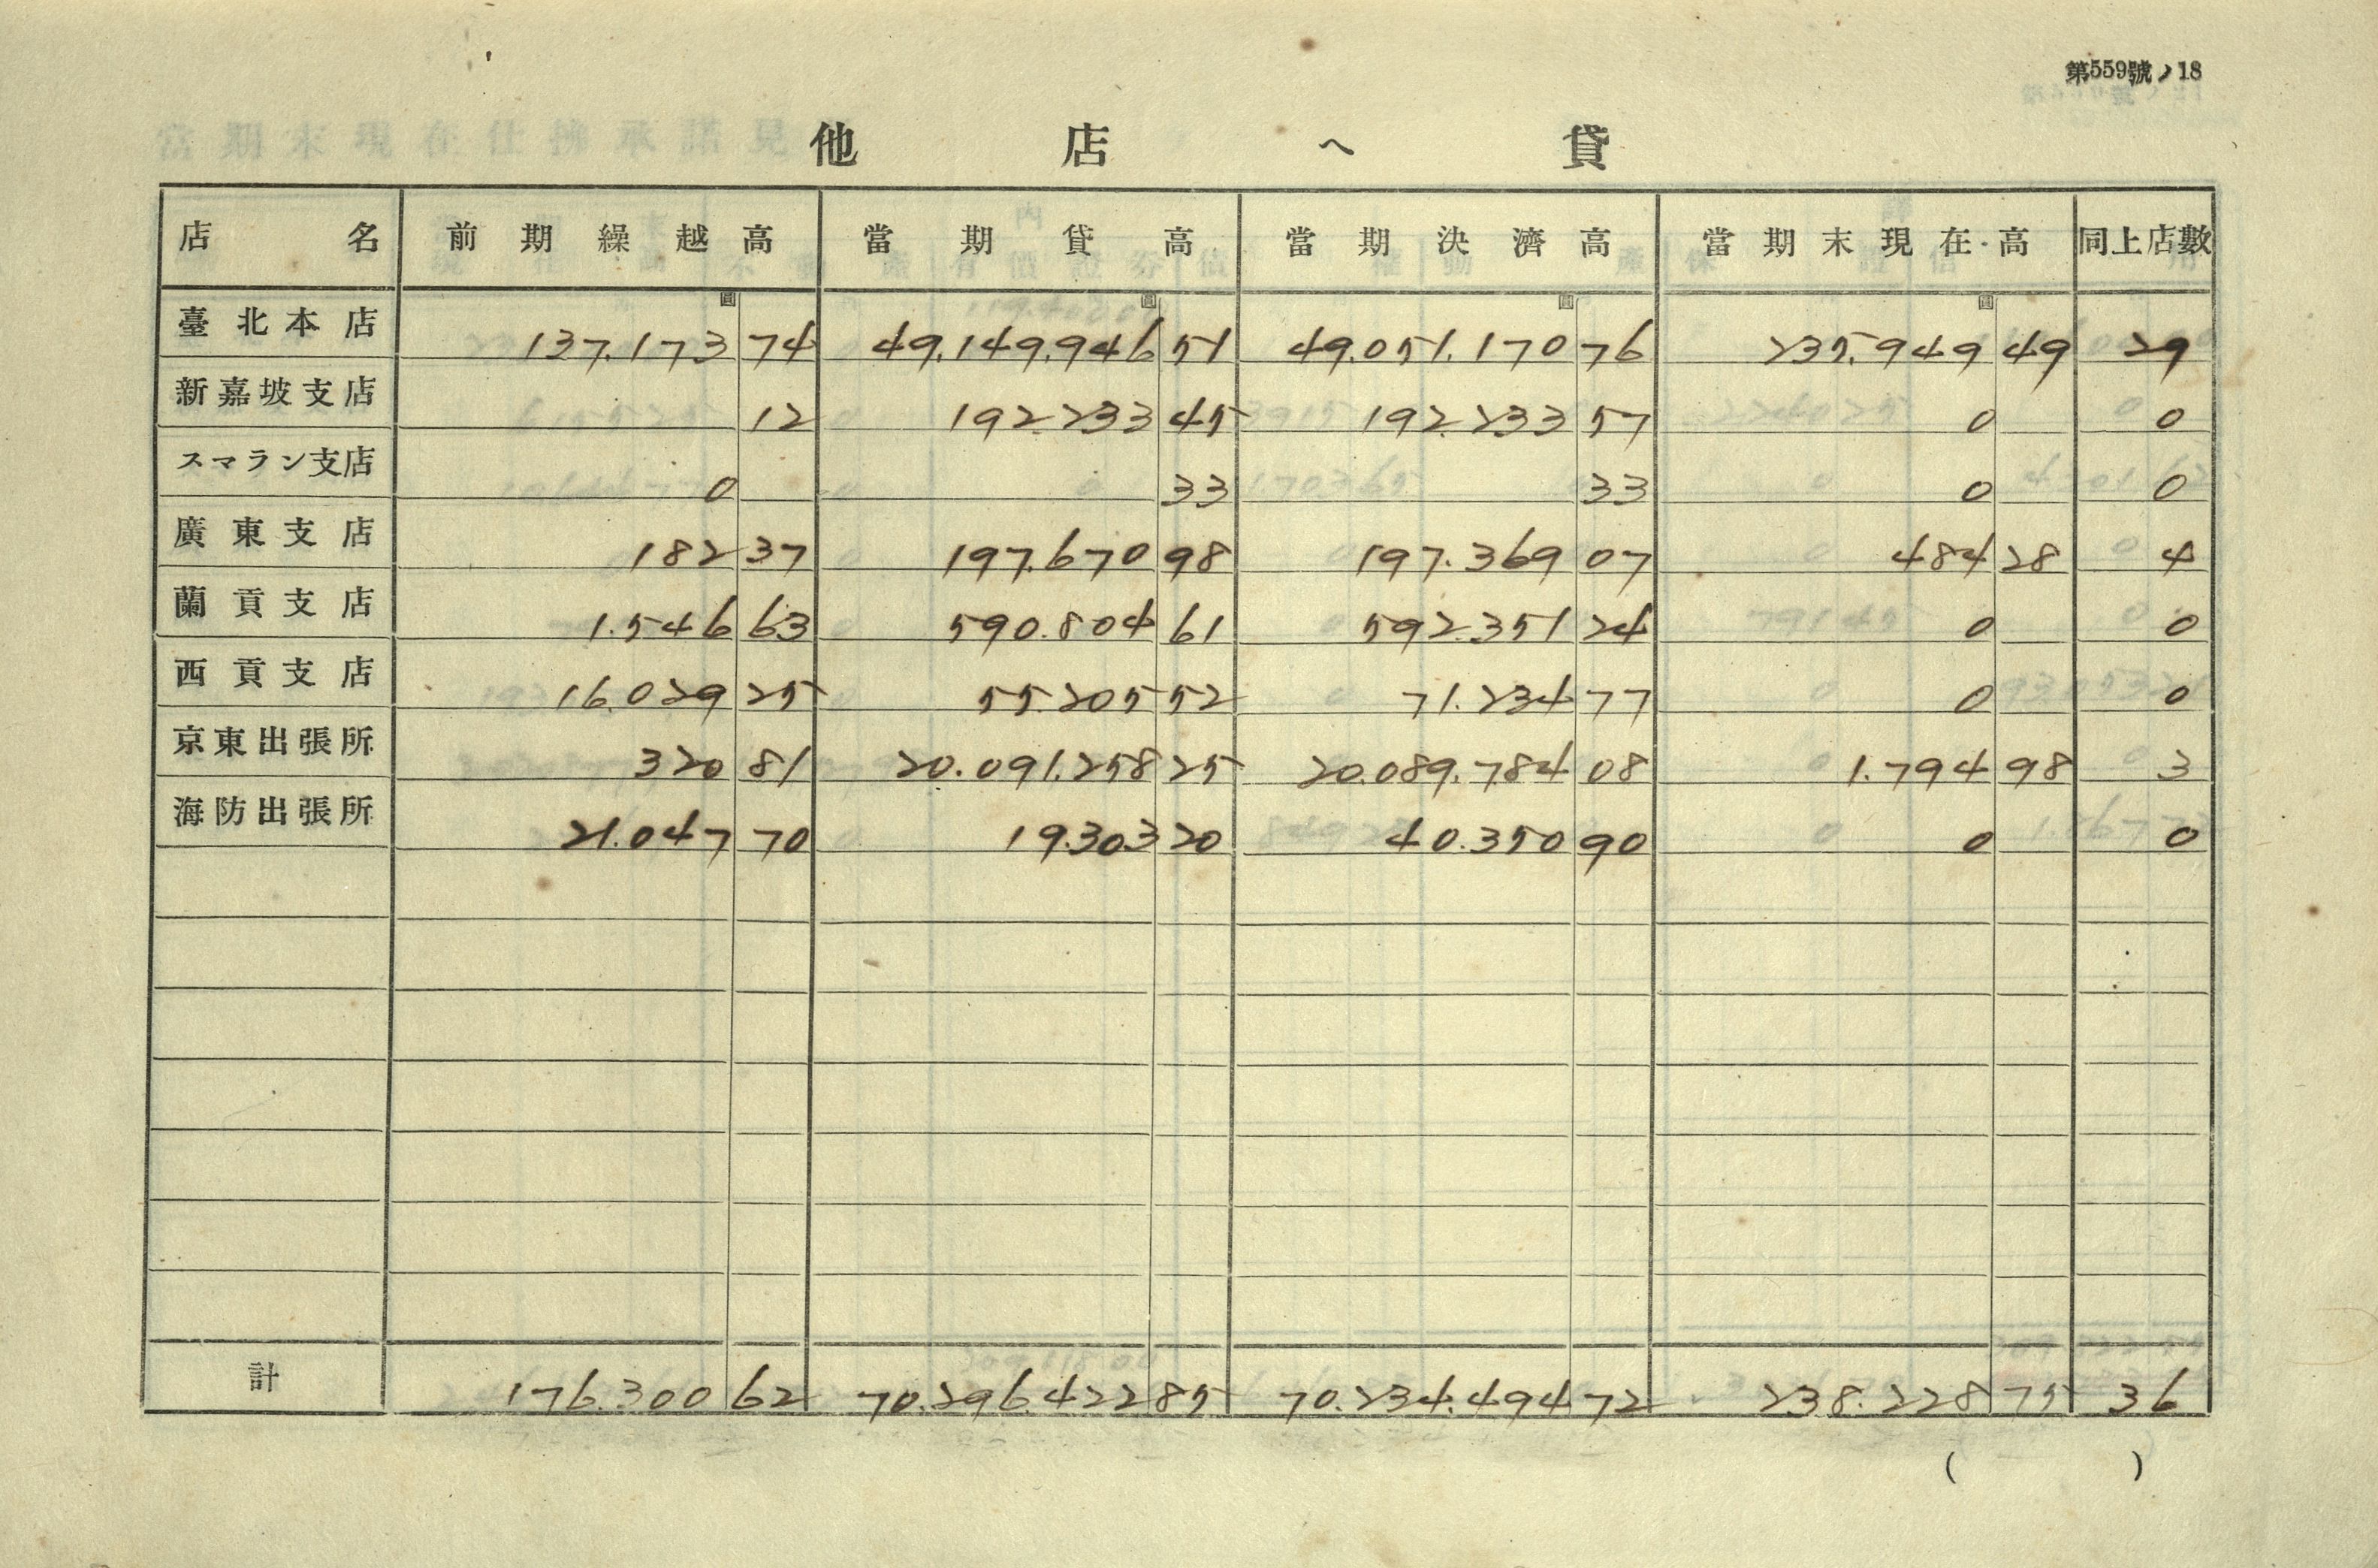 第559號ノ18
他店へ貸
店名 前期繰越高 當期貸高 當期決濟高 當期末現在高 同上店數
圓 圓 圓 圓
臺北本店 137.173 74 49.149.946 51 49.051.170 76 235.949 49 29
新嘉坡支店 12 192.233 45 192.233 57 0 0
スマラン支店 0 33 33 0 0
廣東支店 182 37 197.670 98 197.369 07 484 28 4
蘭貢支店 1.546 63 590.804 61 592.351 24 0 0
西貢支店 16.029 25 55.205 52 71.234 77 0 0
京東出張所 320 81 20.091.258 25 20.089.784 08 1.794 98 3
海防出張所 21.047 70 19.303 20 40.350 90 0 0
計 176.300 62 70.296.422 85 70.234.494 72 238.228 75 36
( )